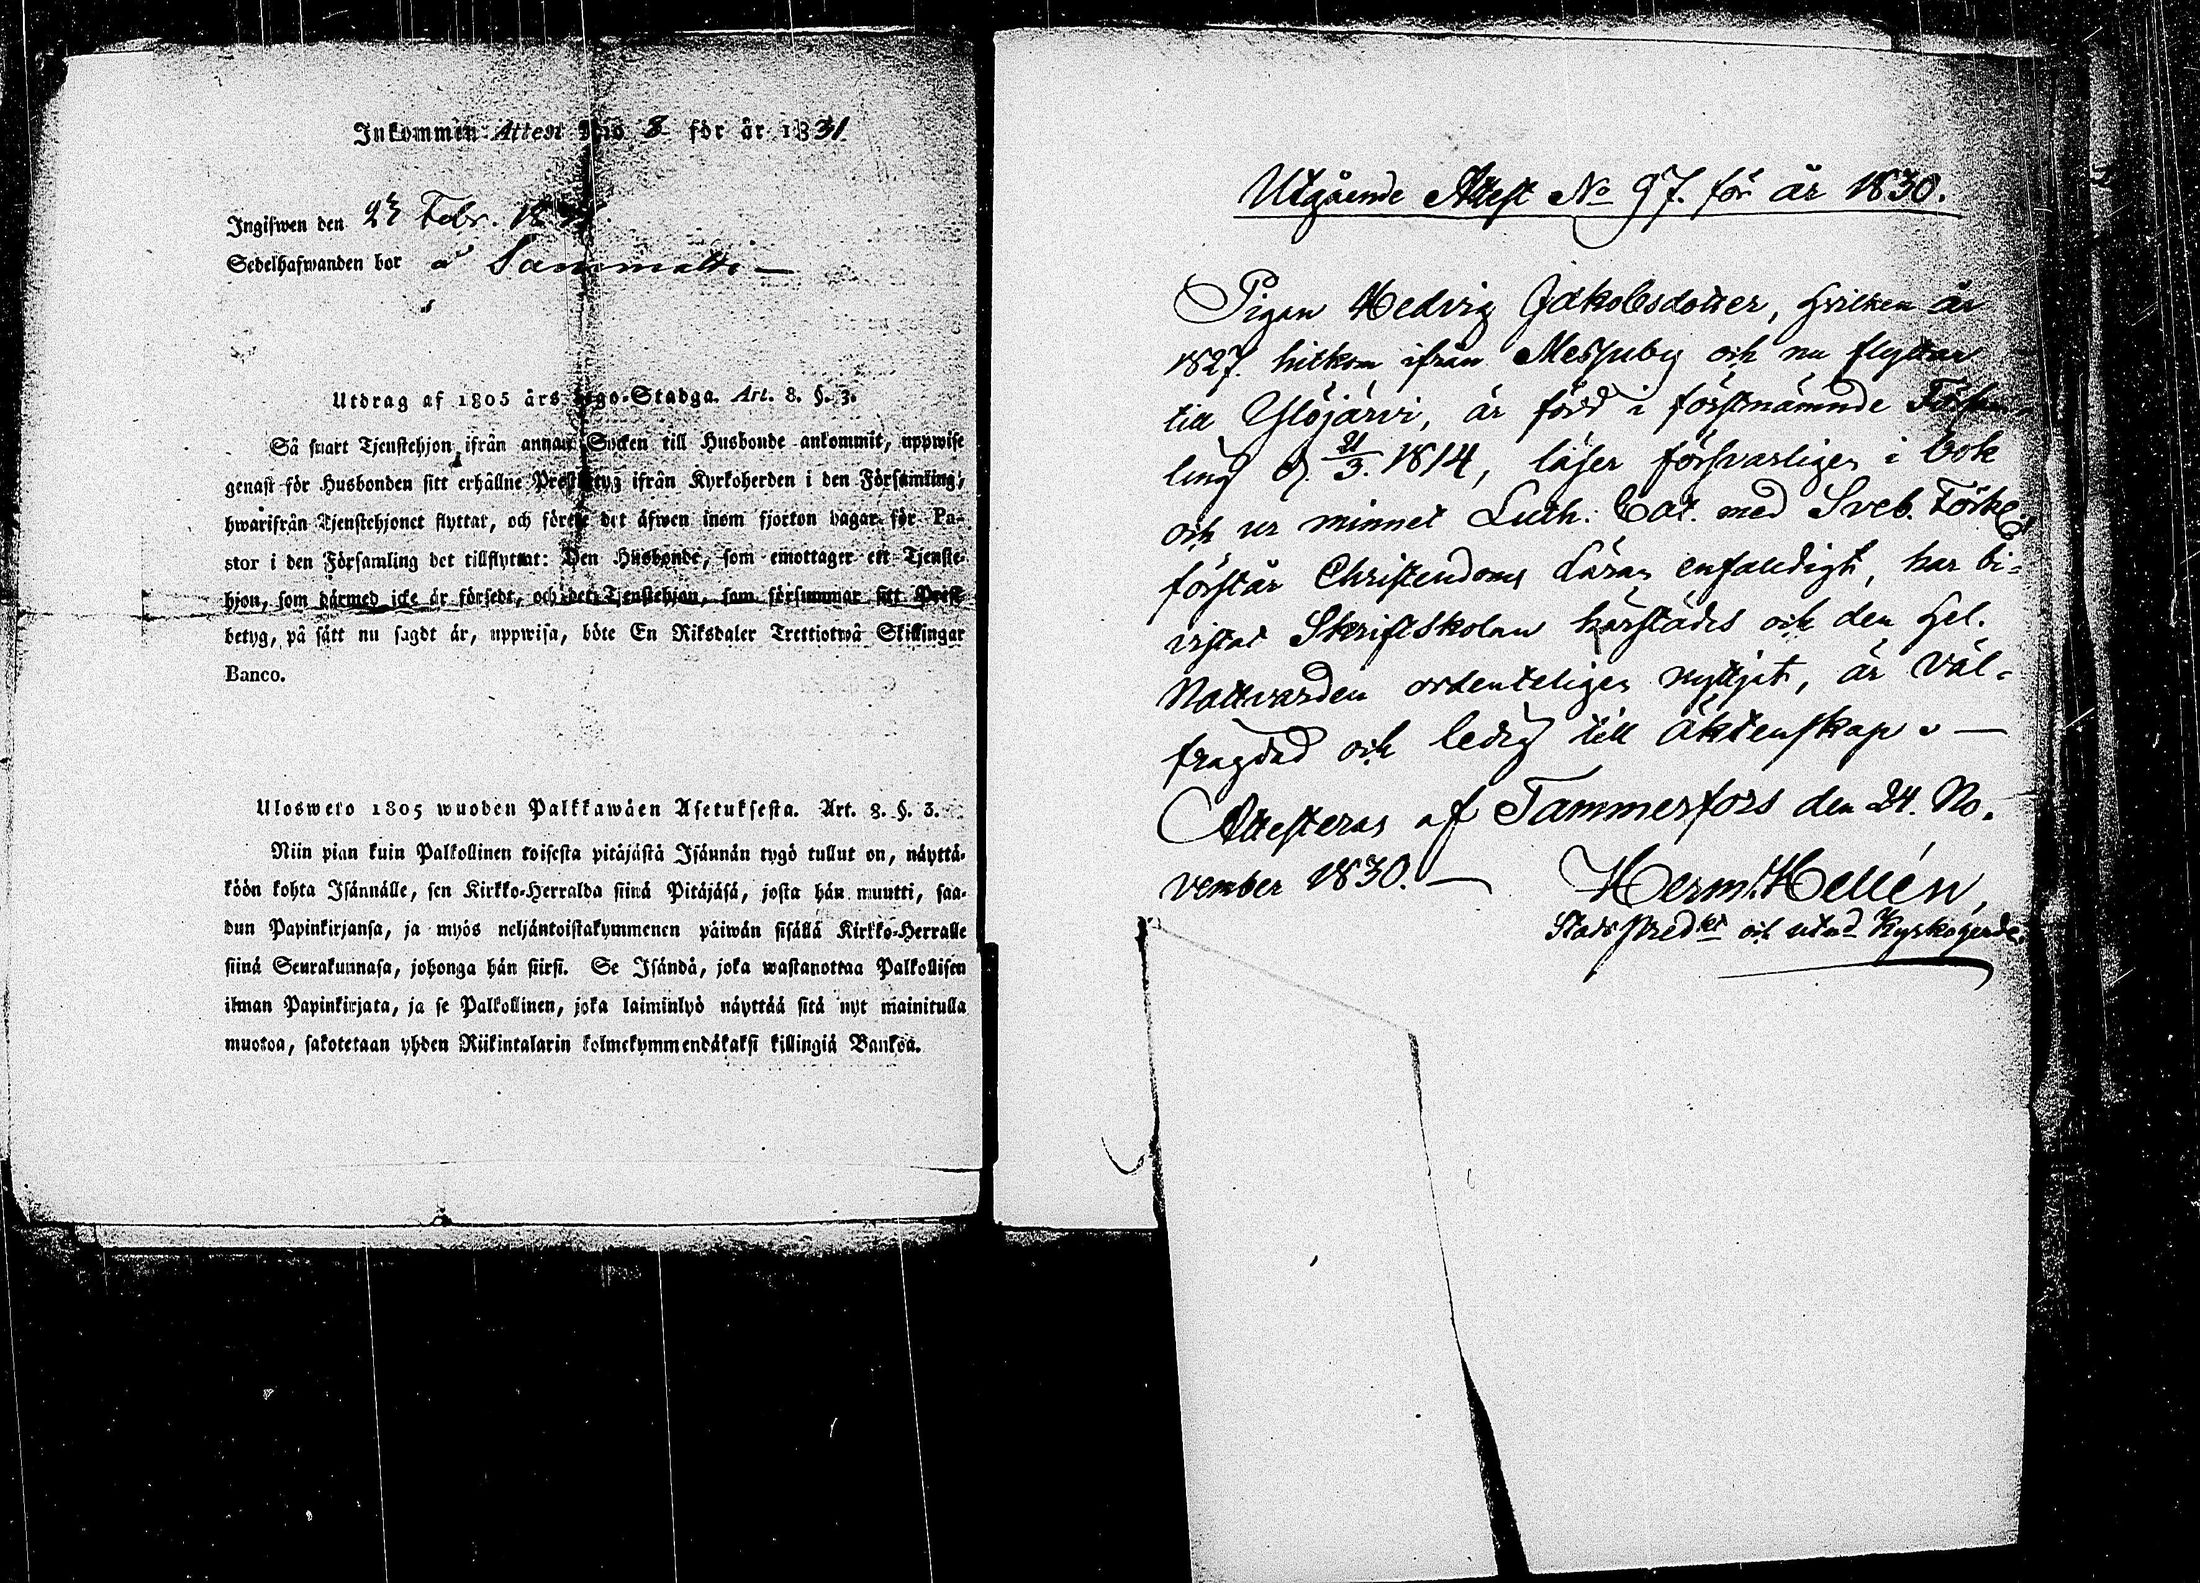 Inkommen Attest N:o 8 för år 1831.
Ingifwen den 23 Febr. 1831.
Sedelhafwanden bor å Sammatti —
Utdrag af 1805 års Lego-Stadga. Art. 8. §. 3.
Så snart Tjenstehjon ifrån annan Socken till Husbonde ankommit, uppwise
genast för Husbonden sitt erhållne Prestbetyg ifrån Kyrkoherden i den Församling,
hwarifrån Tjenstehjonet flyttat, och förete det äfwen inom fjorton dagar för Pa-
stor i den Församling det tillflyttat: Den Husbonde, som emottager ett Tjenste-
hjon, som därmed icke är försedt, och det Tjenstehjon, som försummar sitt Prest-
betyg, på sätt nu sagdt är, uppwisa, böte En Riksdaler Trettiotwå Skillingar
Banco.
Ulosweto 1805 wuoden Palkkawäen Asetuksesta. Art. 8. §. 3.
Niin pian kuin Palkollinen toisesta pitäjästä Isännän tygö tullut on, näyttä-
köön kohta Isännälle, sen Kirkko-Herralda siinä Pitäjäsä, josta hän muutti, saa-
dun Papinkirjansa, ja myös neljäntoistakymmenen päiwän sisällä Kirkko-Herralle
siinä Seurakunnasa, johonga hän siirsi. Se Isändä, joka wastanottaa Palkollisen
ilman Papinkirjata, ja se Palkollinen, joka laiminlyö näyttää sitä nyt mainitulla
muotoa, sakotetaan yhden Riikintalarin kolmekymmendäkaksi killingiä Bankoa.
Utgående Attest No 97. för år 1830.
Pigan Hedvig Jakobsdotter, hvilken år
1827. hitkom ifrån Messuby och nu flyttar
till Ylöjärvi, är född i förstnämnde Försam-
ling d. 21/3. 1814, läser försvarligen i bok
och ur minnet Luth. Cat. med Sveb. Förkl.,
förstår Christendoms Läran enfaldigt, har bi-
vistat Skriftskolan härstädes och den Hel.
Nattvarden ordenteligen nyttjat, är väl-
frägdad och ledig till äktenskap. —
Attesteras af Tammerfors den 24. No-
vember 1830. — Herm. Hellén,
Stads Pred.